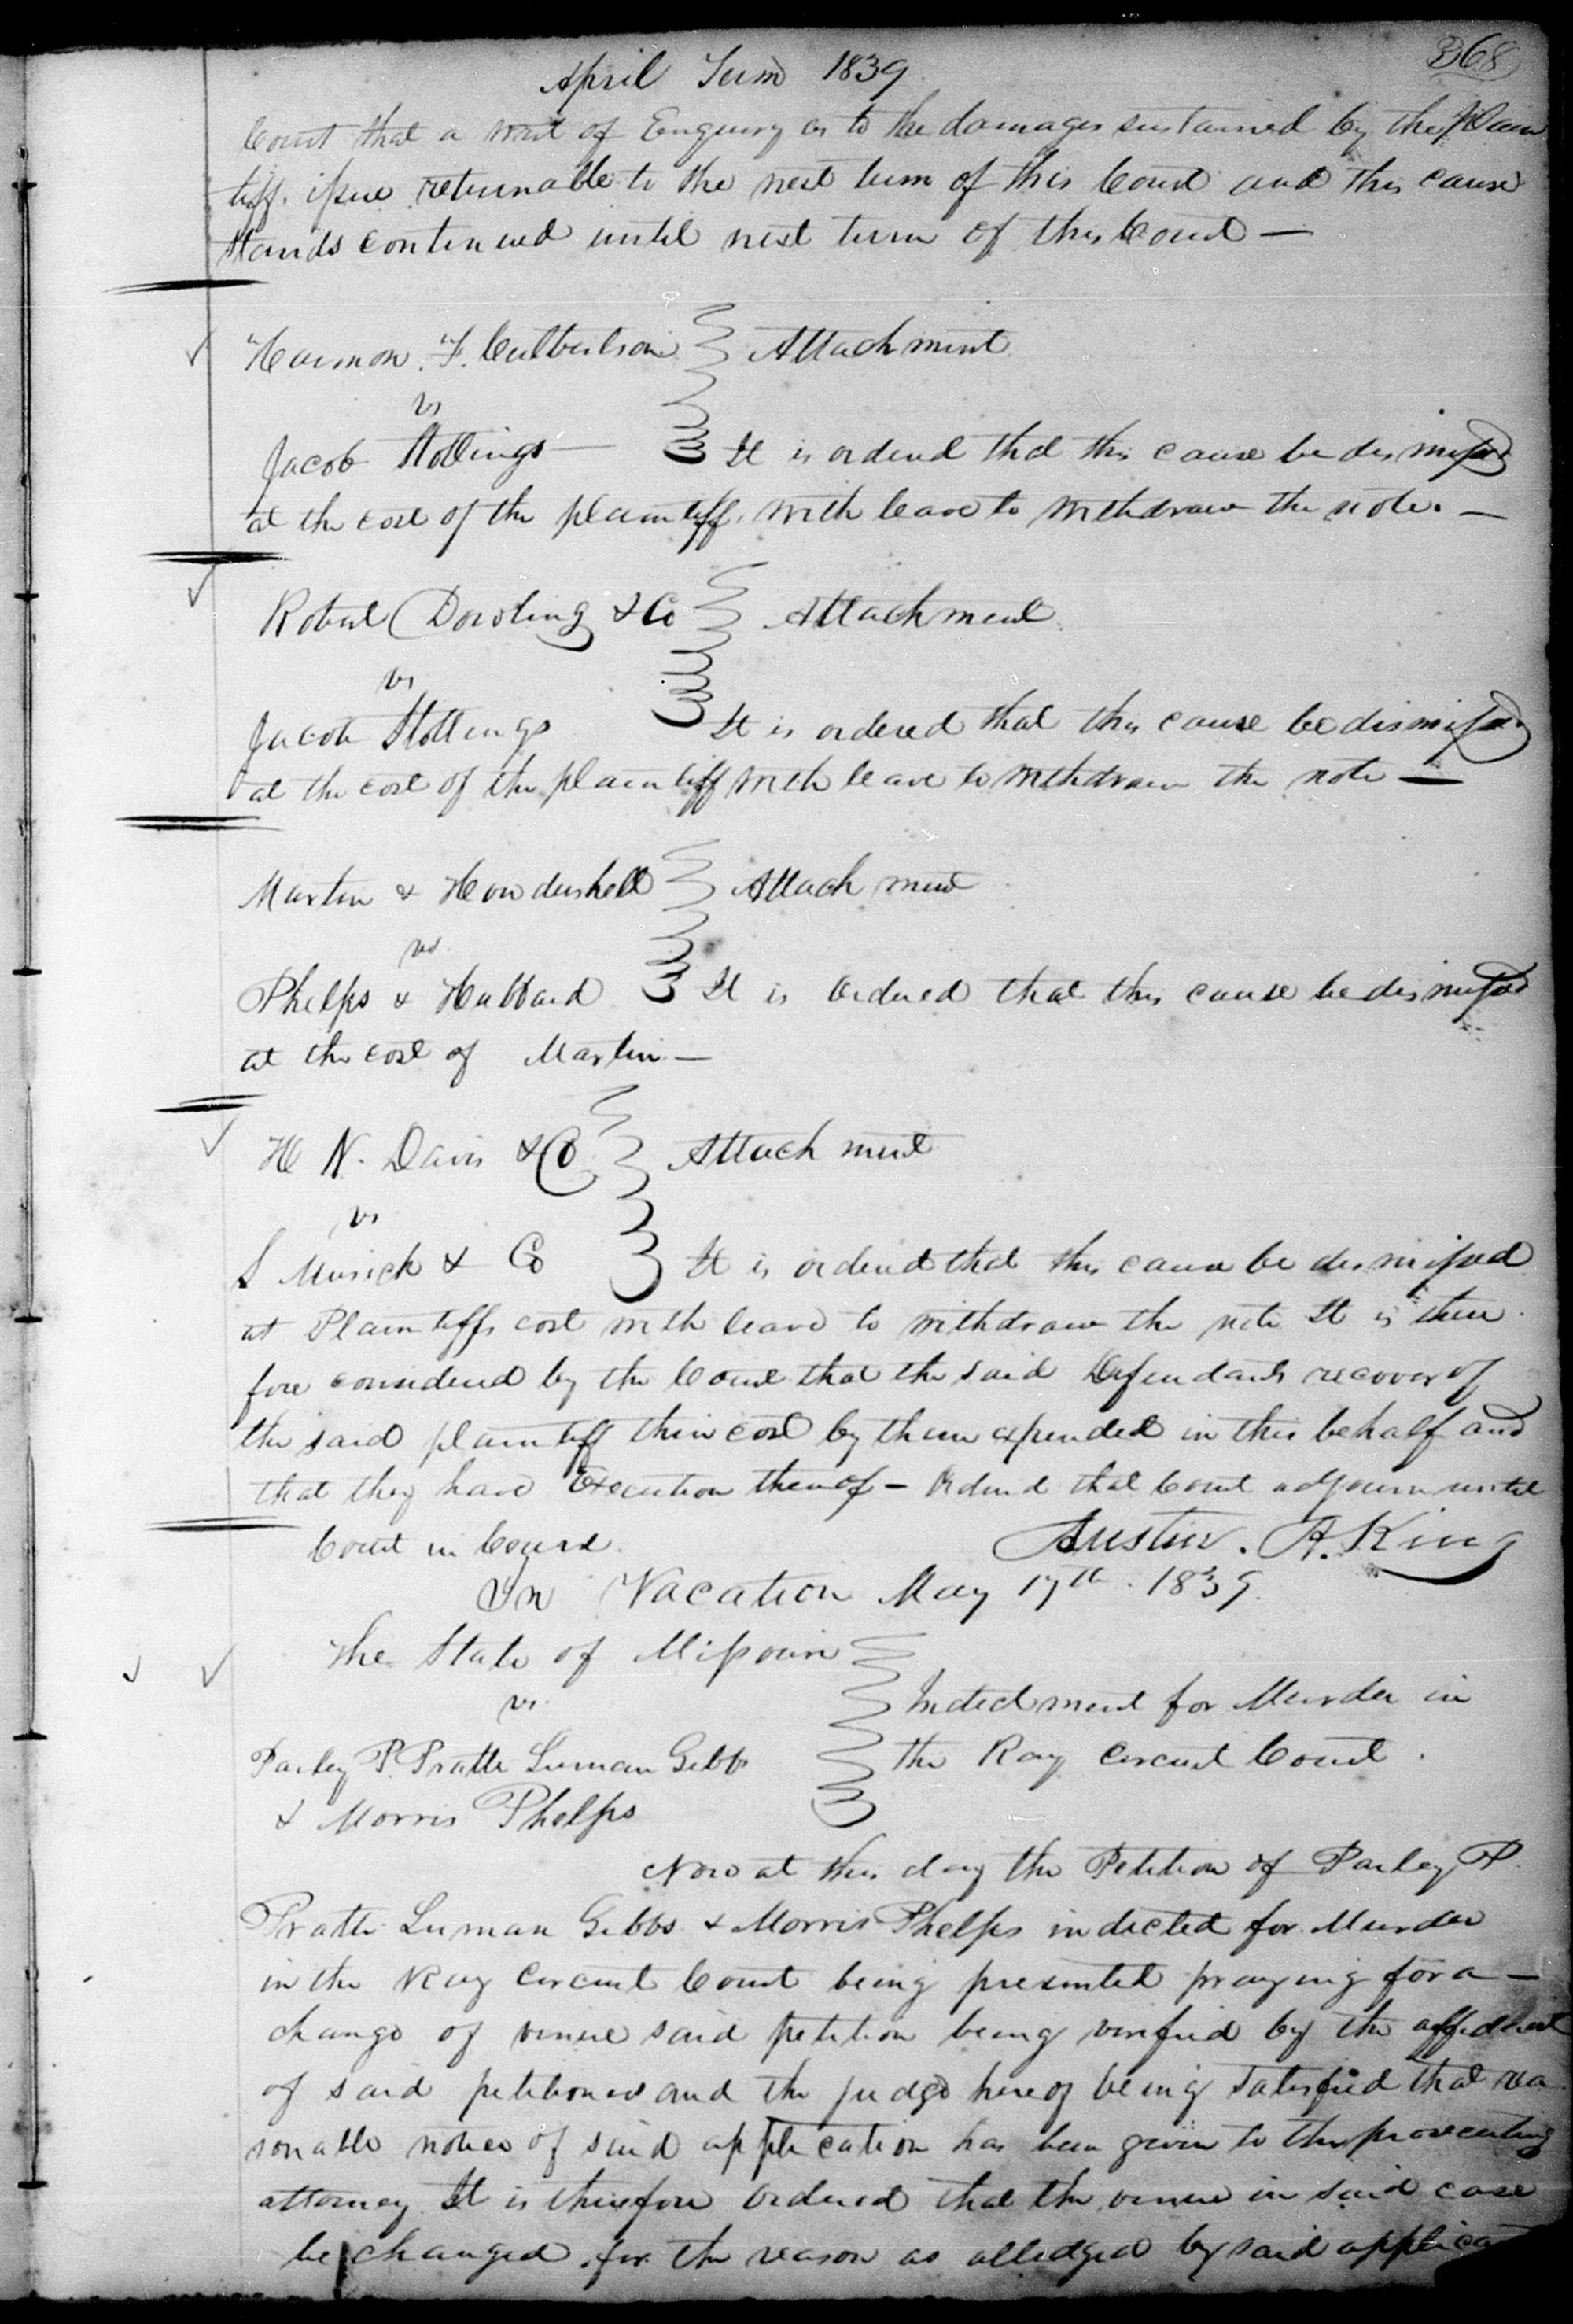 368
April Term 1839
Court that a writ of Enquiry as to the damages sustained by the Plain
tiff. issue returnable to the next term of this Court and this cause
stands continued until next term of this Court —
Harmon. F. Culbertson Attachment
vs
Jacob Stollings — It is ordered that this cause be dismissed
at the cost of the plaintiff. with leave to withdraw the note. —
Robert Dowling & Co Attachment
vs
Jacob Stollings It is ordered that this cause be dismissed
at the cost of the plaintiff with leave to withdraw the note —
Martin & Houdershell Attachment
vs
Phelps & Hubbard It is Ordered that this cause be dismissed
at the cost of Martin —
H N. Davis & Co Attachment
vs
S Musick & Co It is ordered that this cause be dismissed
at Plaintiffs cost with leave to withdraw the note It is there
fore considered by the Court that the said Defendants recover of
the said plaintiff their cost by them expended in this behalf and
that they have Execution thereof — Ordered that Court adjourn until
Court in Course. Austin. A. King
In Vacation May 17th. 1839.
The State of Missouri
vs. Indictment for Murder in
Parley P. Pratte Luman Gibbs the Ray Circuit Court.
& Morris Phelps
Now at this day the Petition of Parley P.
Pratte Luman Gibbs & Morris Phelps indicted for Murder
in the Ray Circuit Court being presented praying for a —
change of venue said petition being verified by the affidavit
of said petitioners and the judge hereof being satisfied that rea
sonable notice of said application has been given to the prosecuting
attorney It is therefore Ordered that the venue in said case
be changed. for the reason as alledged by said applica